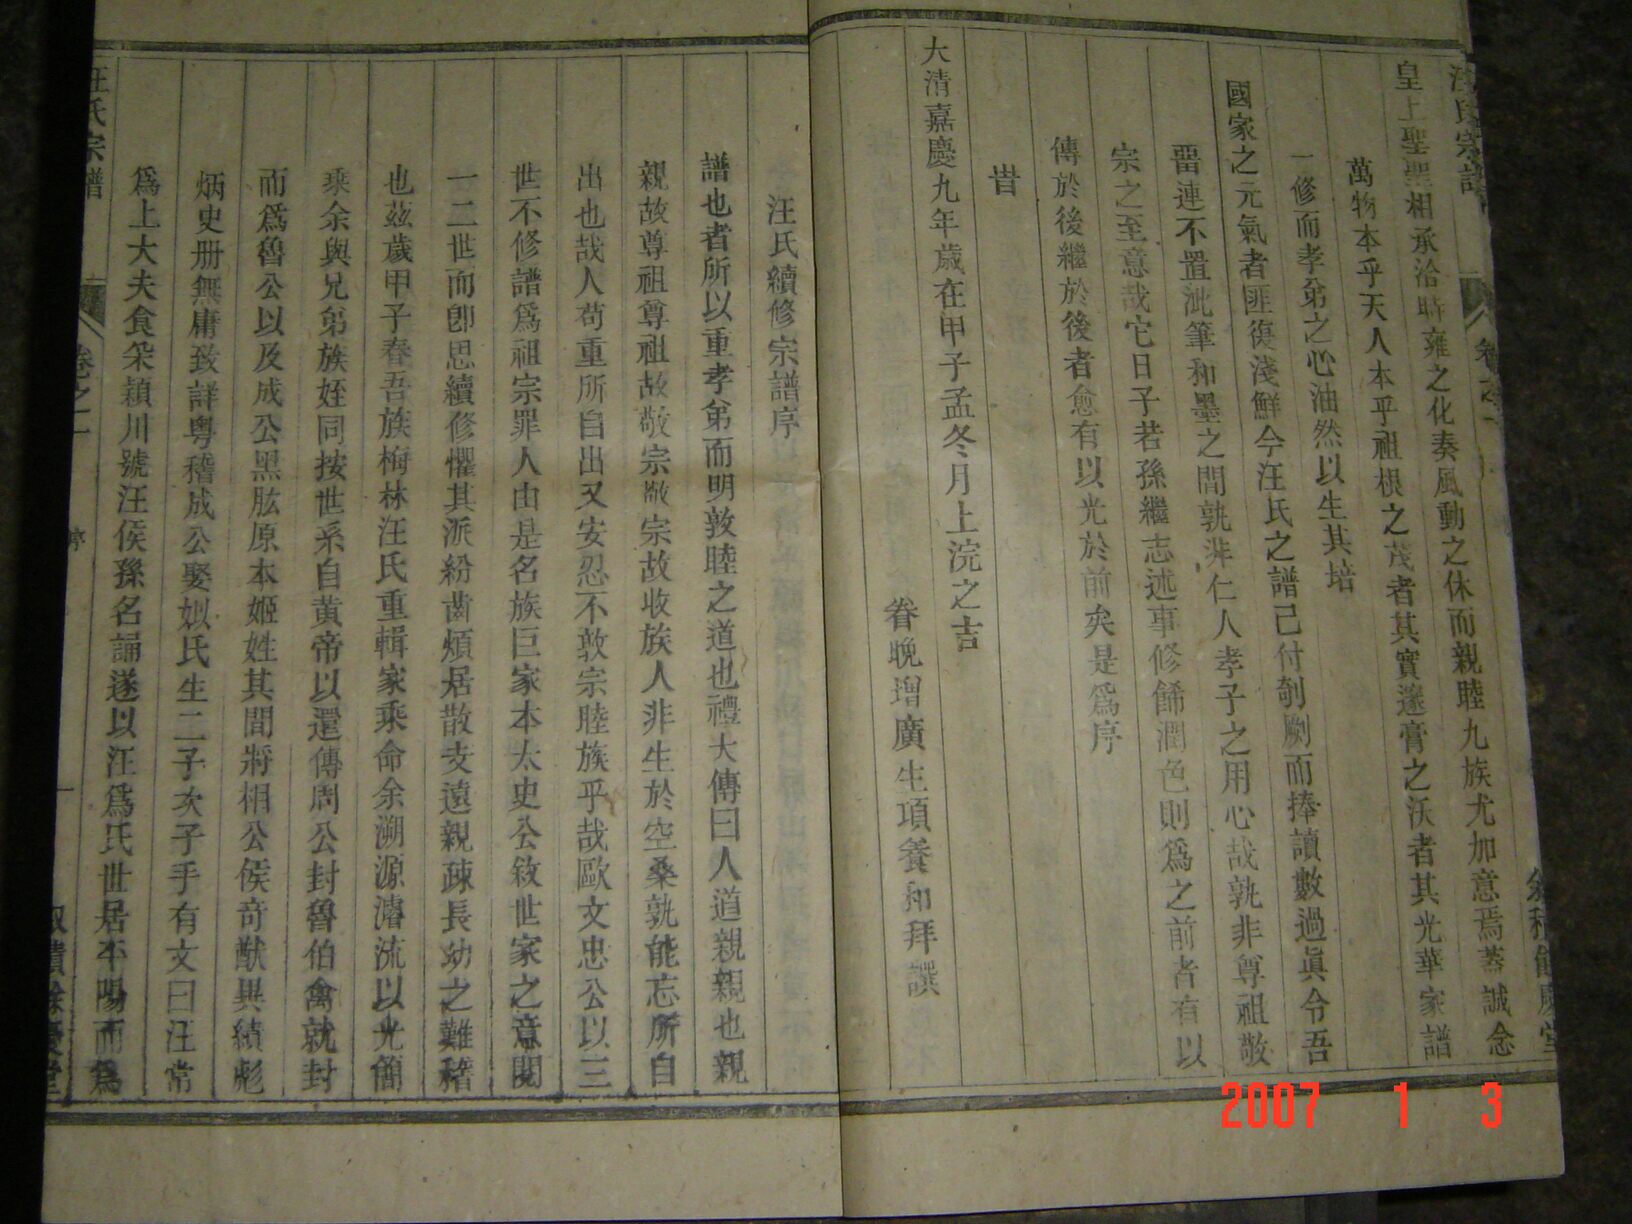 汪氏宗譜
皇上聖聖相承洽時雍之化奏風動之休而親睦九族尤加意焉蓋誠念
萬物本乎天人本乎祖根之茂者其實遂膏之沃者其光華家譜
一修而孝弟之心油然以生其培
國家之元氣者匪復淺鮮今汪氏之譜已付剞劂而捧讀數過眞令吾
畱連不置泚筆和墨之間孰非仁人孝子之用心哉孰非尊祖敬
宗之至意哉它日子若孫繼志述事修餙潤色則爲之前者有以
傳於後繼於後者愈有以光於前矣是爲序
旹
大清嘉慶九年歲在甲子孟冬月上浣之吉
眷晚增廣生項養和拜譔
汪氏續修宗譜序
譜也者所以重孝弟而明敦睦之道也禮大傳曰人道親親也親
親故尊祖尊祖故敬宗敬宗故收族人非生於空桑孰能忘所自
出也哉人苟重所自出又安忍不敦宗睦族乎哉歐文忠公以三
世不修譜爲祖宗罪人由是名族巨家本太史公敘世家之意閱
一二世而卽思續修懼其派紛齒煩居散支遠親疎長幼之難稽
也茲歲甲子春吾族梅林汪氏重輯家乘命余溯源濬流以光簡
乘余與兄弟族姪同按世系自黃帝以還傳周公封魯伯禽就封
而爲魯公以及成公黑肱原本姬姓其間將相公侯奇猷異績彪
炳史册無庸致詳粵稽成公娶姒氏生二子次子手有文曰汪常
爲上大夫食采潁川號汪侯孫名誦遂以汪爲氏世居平陽而爲
汪氏宗譜
卷之一
序
一